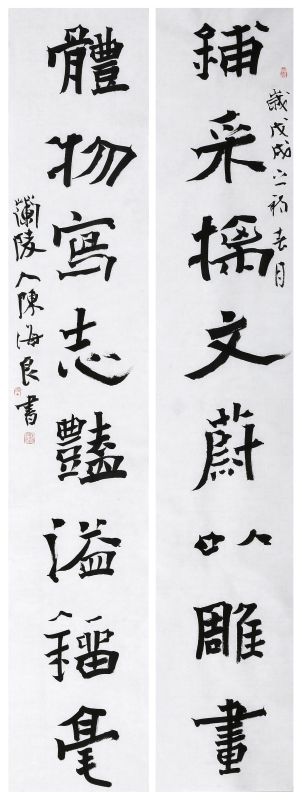 鋪采摛文蔚以雕畫
歲戊戌之初春月
體物寫志豔溢錙毫
蘭陵人陳海良書